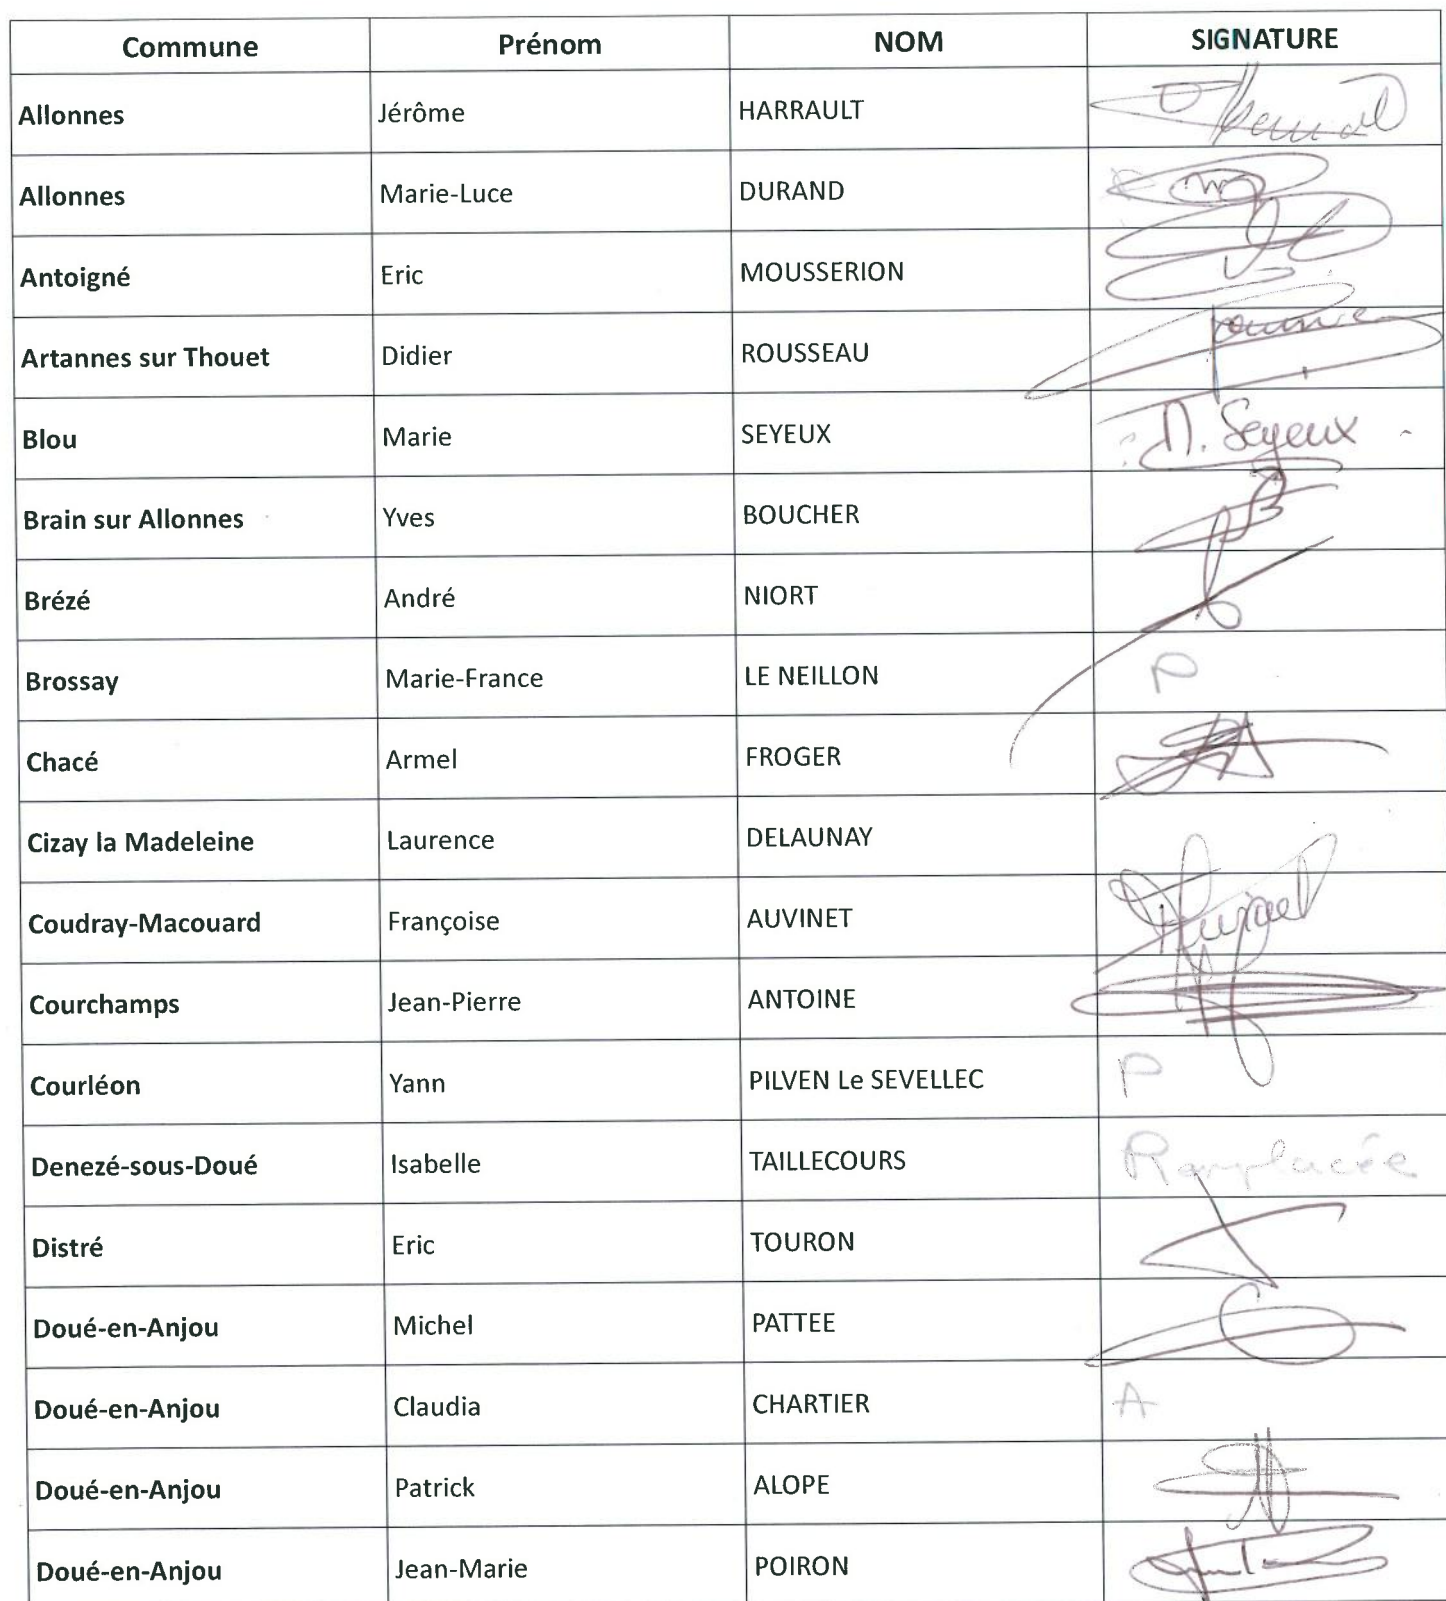 Commune Prénom NOM SIGNATURE
Allonnes Jérôme HARRAULT
Allonnes Marie-Luce DURAND
Antoigné Eric MOUSSERION
Artannes sur Thouet Didier ROUSSEAU
Blou Marie SEYEUX M. Seyeux
Brain sur Allonnes Yves BOUCHER
Brézé André NIORT
Brossay Marie-France LE NEILLON P
Chacé Armel FROGER
Cizay la Madeleine Laurence DELAUNAY
Coudray-Macouard Françoise AUVINET
Courchamps Jean-Pierre ANTOINE
Courléon Yann PILVEN Le SEVELLEC P
Denezé-sous-Doué Isabelle TAILLECOURS Remplacée
Distré Eric TOURON
Doué-en-Anjou Michel PATTEE
Doué-en-Anjou Claudia CHARTIER A
Doué-en-Anjou Patrick ALOPE
Doué-en-Anjou Jean-Marie POIRON